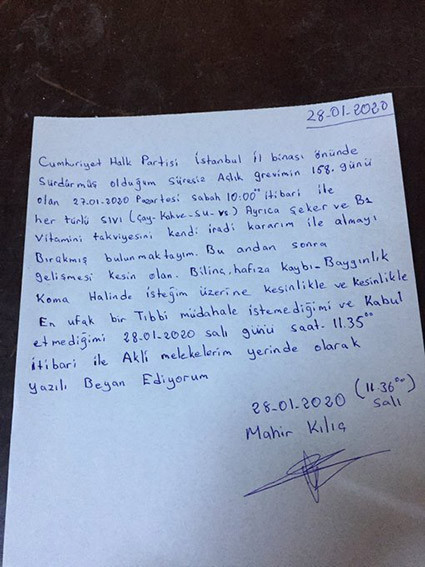 28-01-2020
Cumhuriyet Halk Partisi İstanbul il binası önünde
Sürdürmüş olduğum Süresiz Açlık grevimin 158. günü
olan 27.01.2020 Pazartesi sabah 10:00⁰⁰ itibari ile
her türlü sıvı (Çay-Kahve-Su-vs) Ayrıca Şeker ve B1
Vitamini takviyesini kendi iradi kararım ile almayı
Bırakmış bulunmaktayım. Bu andan sonra
gelişmesi kesin olan. Bilinç, hafıza kaybı-Baygınlık
Koma Halinde isteğim üzerine kesinlikle ve kesinlikle
En ufak bir Tıbbi müdahale istemediğimi ve Kabul
etmediğimi 28-01-2020 salı günü saat. 11.35⁰⁰
itibari ile Akli melekelerim yerinde olarak
yazılı Beyan Ediyorum
28-01-2020 (11.36⁰⁰)
Salı
Mahir Kılıç